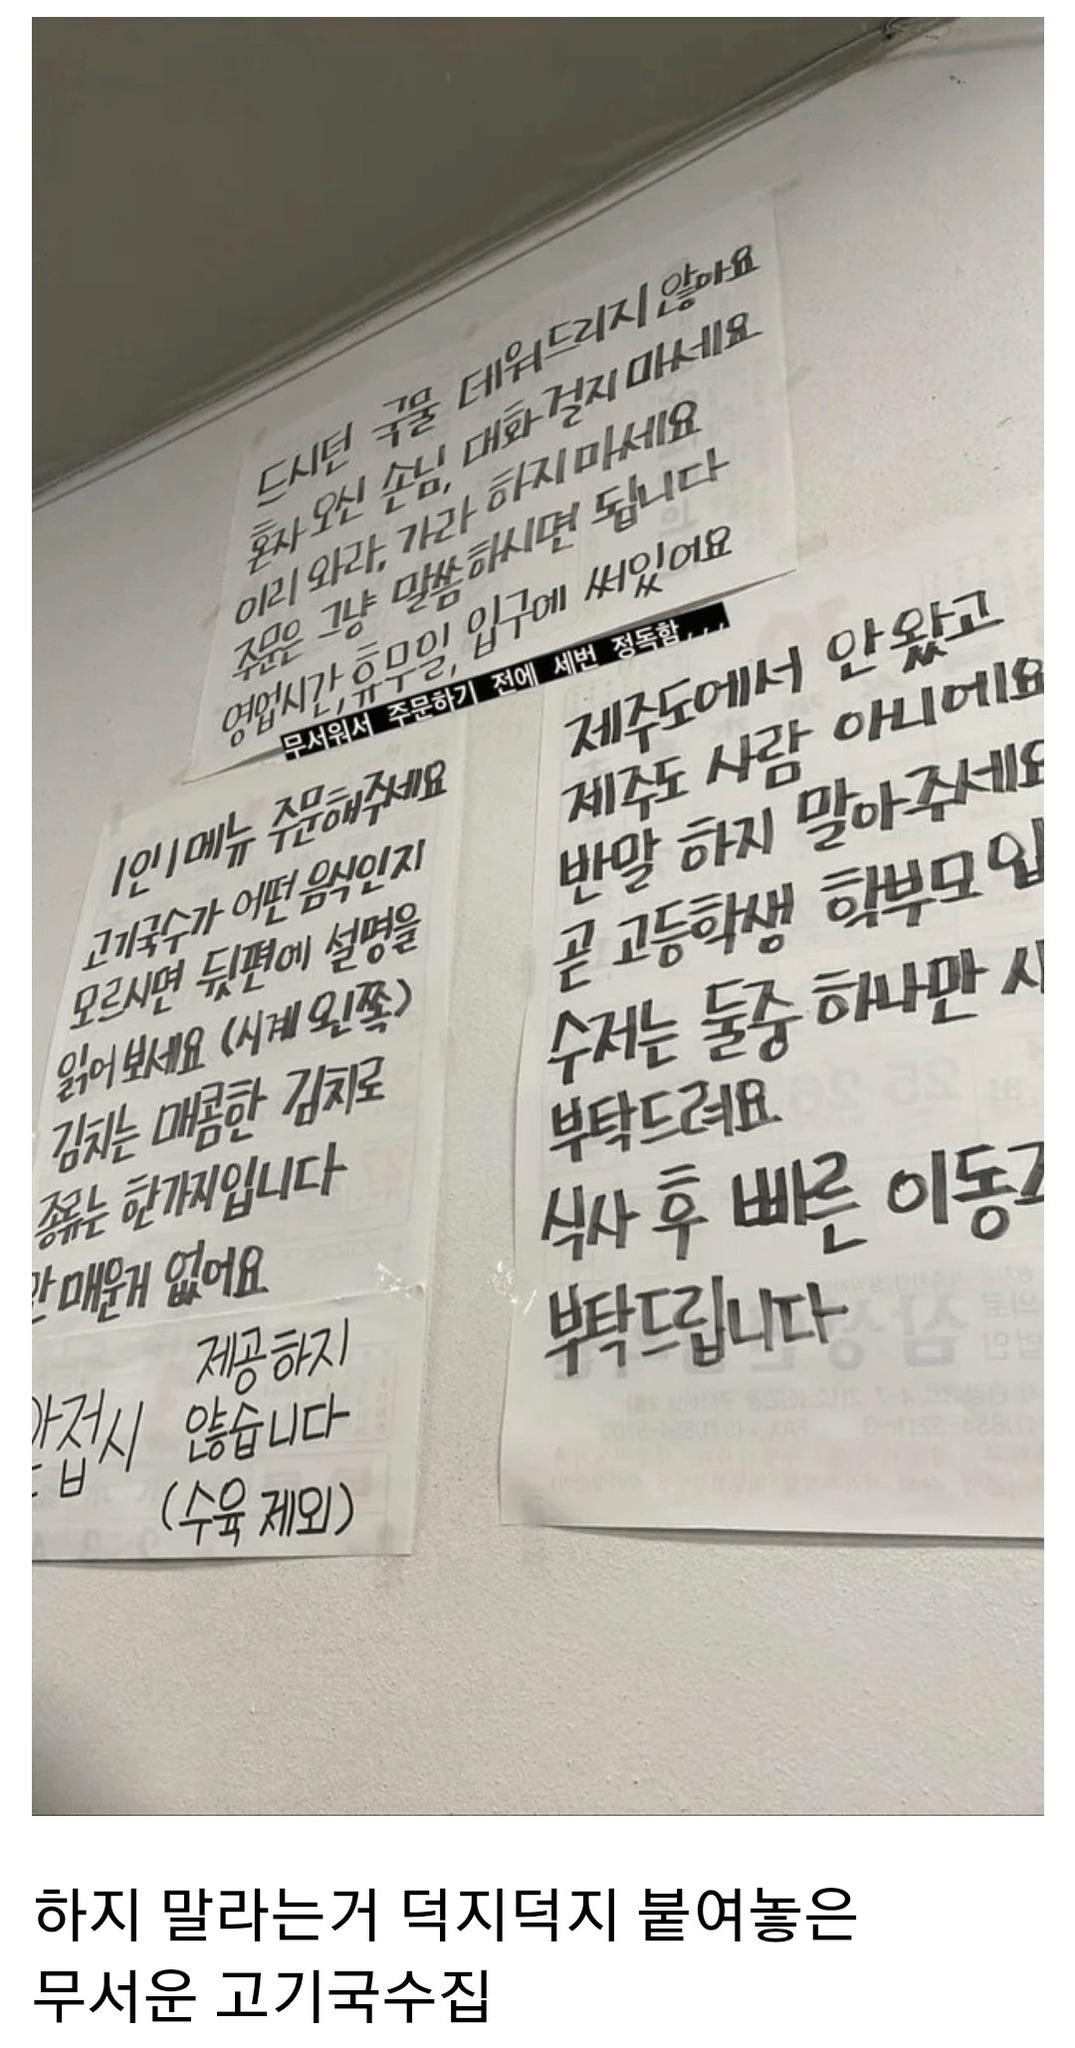 드시던 국물 데워드리지 않아요
혼자 오신 손님, 대화 걸지 마세요
이리 와라, 가라 하지 마세요
주문은 그냥 말씀하시면 됩니다
영업시간, 휴무일, 입구에 써있어요
무서워서 주문하기 전에 세번 정독함,,,
1인 1메뉴 주문해주세요
고기국수가 어떤 음식인지
모르시면 뒷편에 설명을
읽어 보세요 (시계 왼쪽)
김치는 매콤한 김치로
종류는 한가지입니다
안 매운게 없어요
앞접시 제공하지
않습니다
(수육 제외)
제주도에서 안 왔고
제주도 사람 아니에요
반말 하지 말아주세요
곧 고등학생 학부모 입
수저는 둘중 하나만 사
부탁드려요
식사 후 빠른 이동
부탁드립니다
하지 말라는거 덕지덕지 붙여놓은
무서운 고기국수집